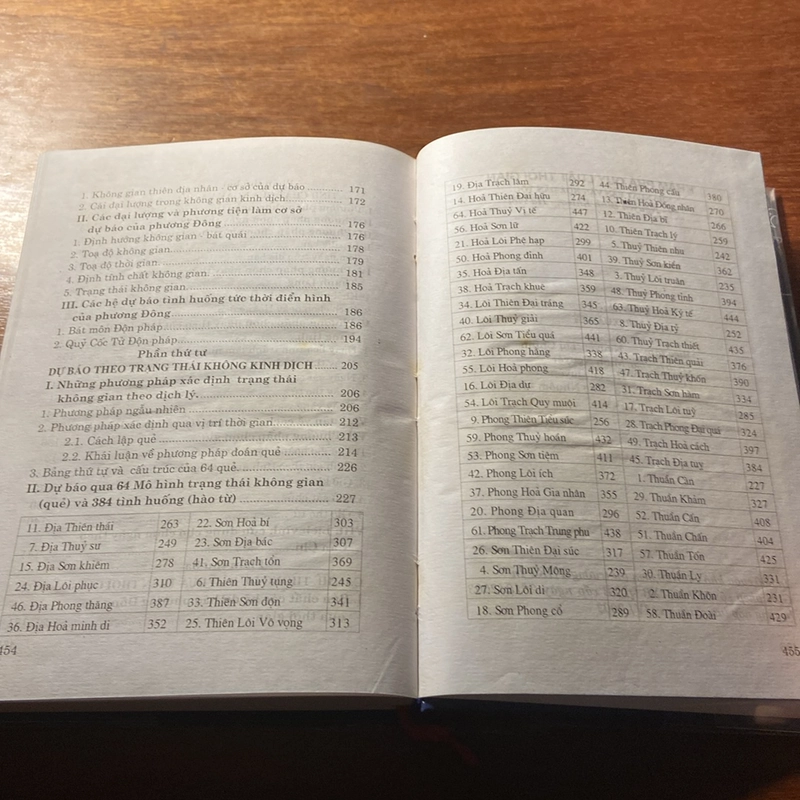 1. Không gian thiên địa nhân - cơ sở của dự báo .......... 171
2. Cái đại lượng trong không gian kinh dịch .......... 172
II. Các đại lượng và phương tiện làm cơ sở
dự báo của phương Đông .......... 176
1. Định hướng không gian - bát quái .......... 176
2. Toạ độ không gian .......... 178
3. Toạ độ thời gian .......... 179
4. Định tính chất không gian .......... 181
5. Trạng thái không gian .......... 185
III. Các hệ dự báo tình huống tức thời điển hình
của phương Đông .......... 186
1. Bát môn Độn pháp .......... 186
2. Quỷ Cốc Tử Độn pháp .......... 194
Phần thứ tư
DỰ BÁO THEO TRẠNG THÁI KHÔNG KINH DỊCH .... 205
I. Những phương pháp xác định trạng thái
không gian theo dịch lý. .......... 206
1. Phương pháp ngẫu nhiên .......... 206
2. Phương pháp xác định qua vị trí thời gian .......... 212
2.1. Cách lập quẻ .......... 213
2.2. Khái luận về phương pháp đoán quẻ .......... 214
3. Bảng thứ tự và cấu trúc của 64 quẻ. .......... 226
II. Dự báo qua 64 Mô hình trạng thái không gian
(quẻ) và 384 tình huống (hào từ) .......... 227
11. Địa Thiên thái 263 22. Sơn Hoả bí 303
7. Địa Thuỷ sư 249 23. Sơn Địa bác 307
15. Địa Sơn khiêm 278 41. Sơn Trạch tổn 369
24. Địa Lôi phục 310 6. Thiên Thuỷ tụng 245
46. Địa Phong thăng 387 33. Thiên Sơn độn 341
36. Địa Hoả minh di 352 25. Thiên Lôi Vô vọng 313
454
19. Địa Trạch lâm 292 44. Thiên Phong cấu 380
14. Hoả Thiên Đại hữu 274 13. Thiên Hoả Đồng nhân 270
64. Hoả Thuỷ Vị tế 447 12. Thiên Địa bĩ 266
56. Hoả Sơn lữ 422 10. Thiên Trạch lý 259
21. Hoả Lôi Phệ hạp 299 5. Thuỷ Thiên nhu 242
50. Hoả Phong đỉnh 401 39. Thuỷ Sơn kiển 362
35. Hoả Địa tấn 348 3. Thuỷ Lôi truân 235
38. Hoả Trạch khuê 359 48. Thuỷ Phong tỉnh 394
34. Lôi Thiên Đại tráng 345 63. Thuỷ Hoả Ký tế 444
40. Lôi Thuỷ giải 365 8. Thuỷ Địa tỷ 252
62. Lôi Sơn Tiểu quá 441 60. Thuỷ Trạch thiết 435
32. Lôi Phong hằng 338 43. Trạch Thiên quải 376
55. Lôi Hoả phong 418 47. Trạch Thuỷ khốn 390
16. Lôi Địa dự 282 31. Trạch Sơn hàm 334
54. Lôi Trạch Quy muội 414 17. Trạch Lôi tuỳ 285
9. Phong Thiên Tiểu súc 256 28. Trạch Phong Đại quá 324
59. Phong Thuỷ hoán 432 49. Trạch Hoả cách 397
53. Phong Sơn tiệm 411 45. Trạch Địa tuỵ 384
42. Phong Lôi ích 372 1. Thuần Càn 227
37. Phong Hoả Gia nhân 355 29. Thuần Khảm 327
20. Phong Địa quan 296 52. Thuần Cấn 408
61. Phong Trạch Trung phu 438 51. Thuần Chấn 404
26. Sơn Thiên Đại súc 317 57. Thuần Tốn 425
4. Sơn Thuỷ Mông 239 30. Thuần Ly 331
27. Sơn Lôi di 320 2. Thuần Khôn 231
18. Sơn Phong cổ 289 58. Thuần Đoài 429
455